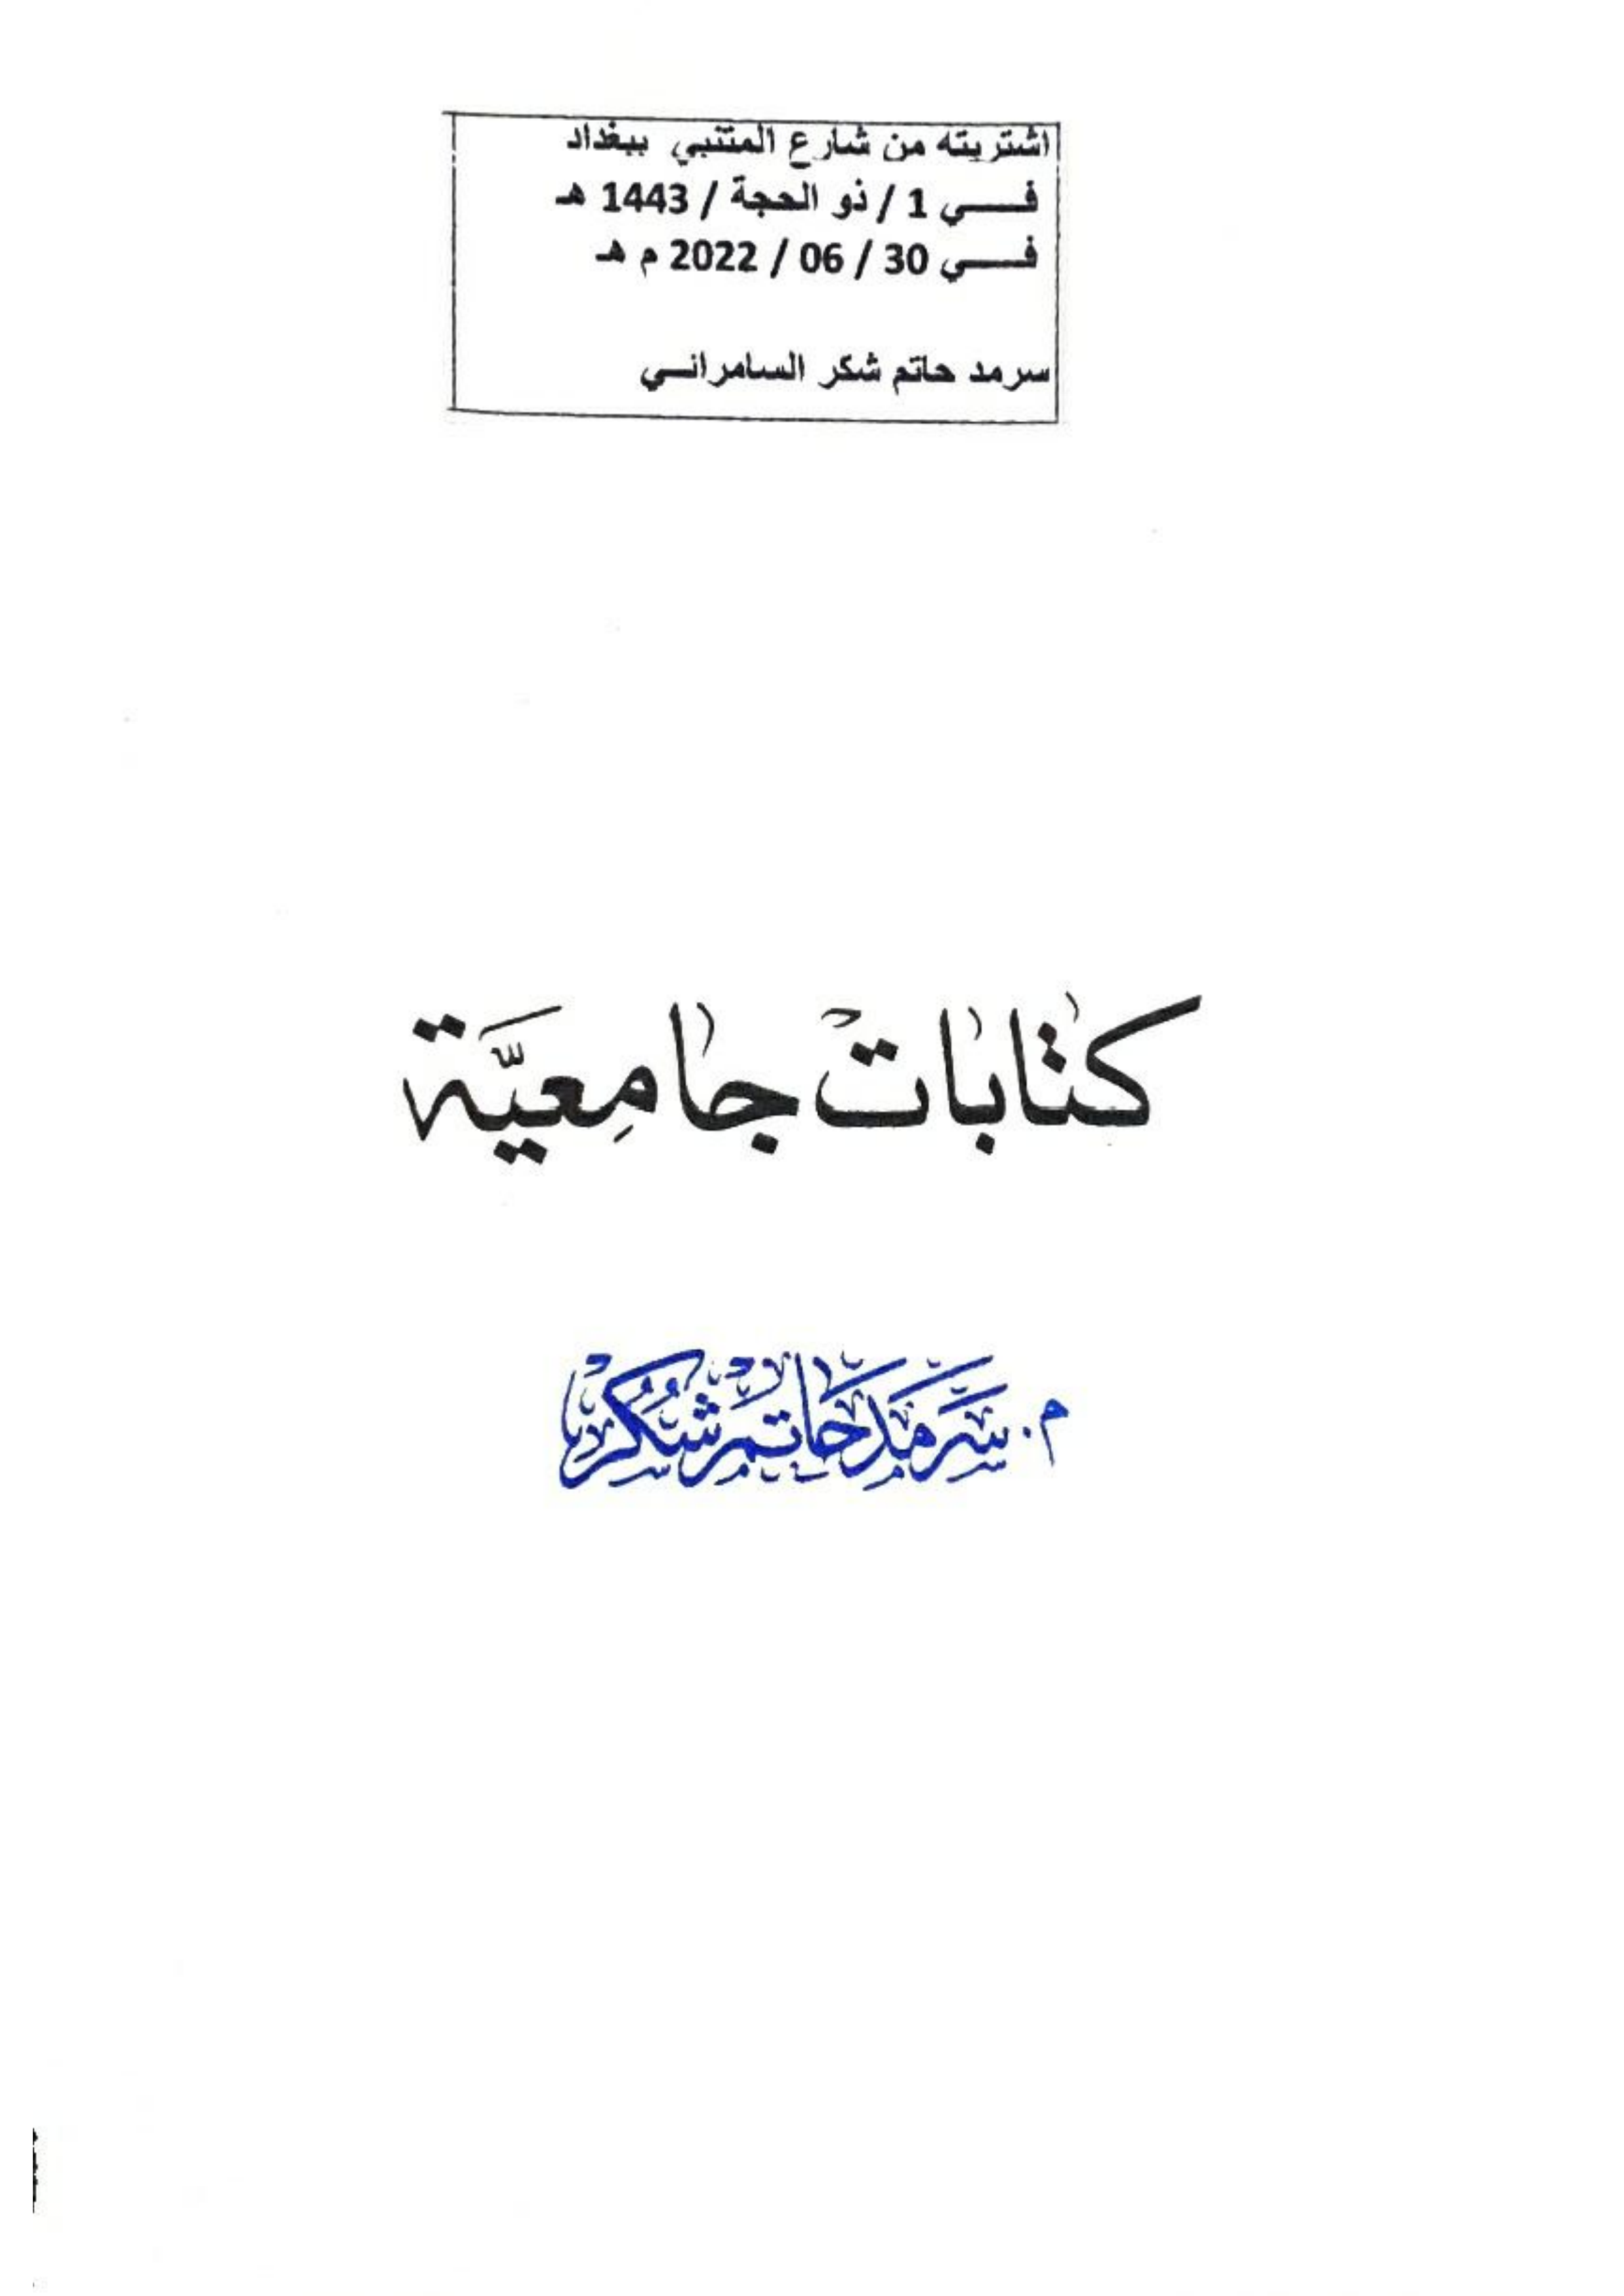 اشتريته من شارع المتنبي ببغداد
فـــي 1 / ذو الحجة / 1443 هـ
فـــي 30 / 06 / 2022 م هـ
سرمد حاتم شكر السامرائـــي
كتابات جامعيَّة
م. سرمد حاتم شكر